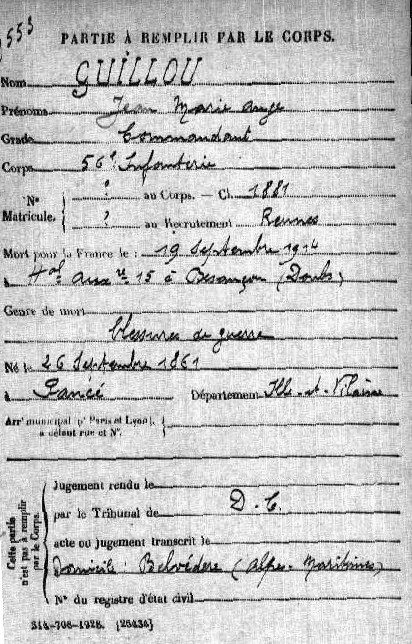 9553
PARTIE À REMPLIR PAR LE CORPS.
Nom GUILLOU
Prénoms Jean Marie Ange
Grade Commandant
Corps 56e Infanterie
N° Matricule. { ? au Corps. — Cl. 1881
? au Recrutement Rennes
Mort pour la France le : 19 Septembre 1914
à Hal auxre 15 à Besançon (Doubs)
Genre de mort
blessures de guerre
Né le 26 Septembre 1861
à Pancé Département Ille-et-Vilaine
Arrt municipal (pr Paris et Lyon),
à défaut rue et N°.
Cette partie n'est pas à remplir par le Corps.
Jugement rendu le
par le Tribunal de D. C.
acte ou jugement transcrit le
Domicile : Belvédère (Alpes-Maritimes)
N° du registre d'état civil
314-708-1922. [26434]